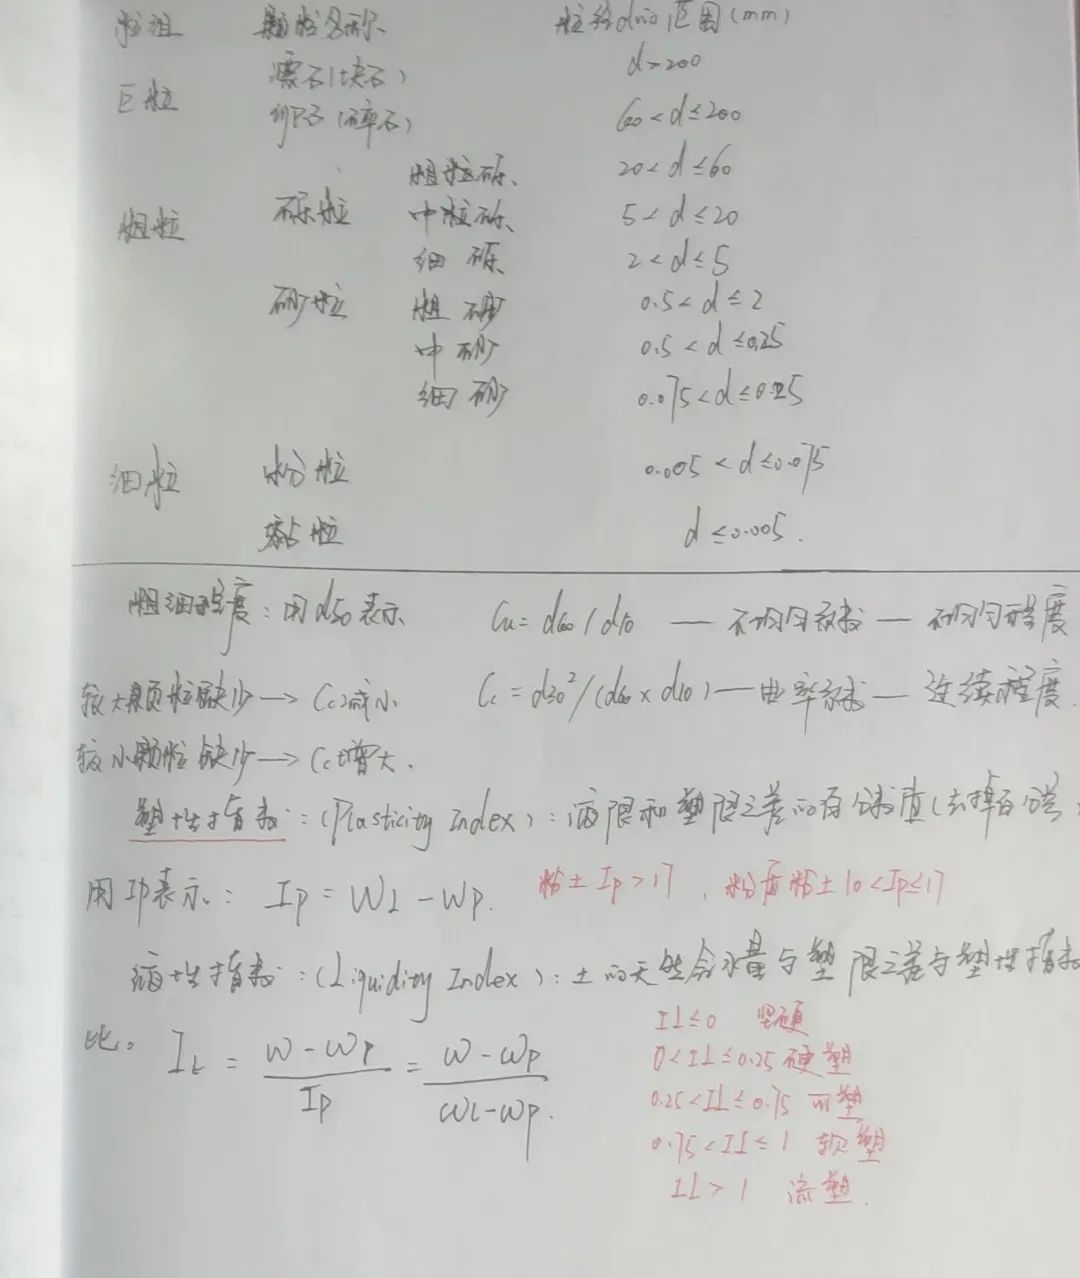 粒组 颗粒名称 粒径d(mm)范围(mm)
漂石(块石) d>200
巨粒 卵石(碎石) 60<d≤200
粗粒砾 20<d≤60
粗粒 砾粒 中粒砾 5<d≤20
细砾 2<d≤5
砂粒 粗砂 0.5<d≤2
中砂 0.5<d≤0.25
细砂 0.075<d≤0.25
细粒 粉粒 0.005<d≤0.075
黏粒 d≤0.005.
粗细程度:用d50表示 Cu=d60/d10 — 不均匀系数 — 不均匀程度
较大颗粒缺少→Cc减小 Cc=d30²/(d60×d10)—曲率系数— 连续程度.
较小颗粒缺少→Cc增大.
塑性指数:(Plasticity Index):液限和塑限之差的百分数值(去掉百分
用Ip表示: Ip=WL-Wp. 粘土Ip>17,粉质粘土10<Ip≤17
液性指数:(Liquidity Index):土的天然含水量与塑限之差与塑性指数
比。 IL = (ω-ωp)/Ip = (ω-ωp)/(ωL-ωp).
IL≤0 坚硬
0<IL≤0.25 硬塑
0.25<IL≤0.75 可塑
0.75<IL≤1 软塑
IL>1 流塑.